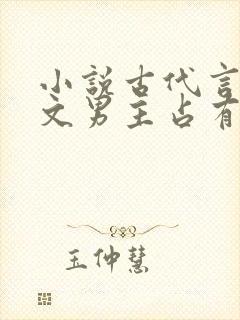 小说古代言
文男主占有
王仲慧